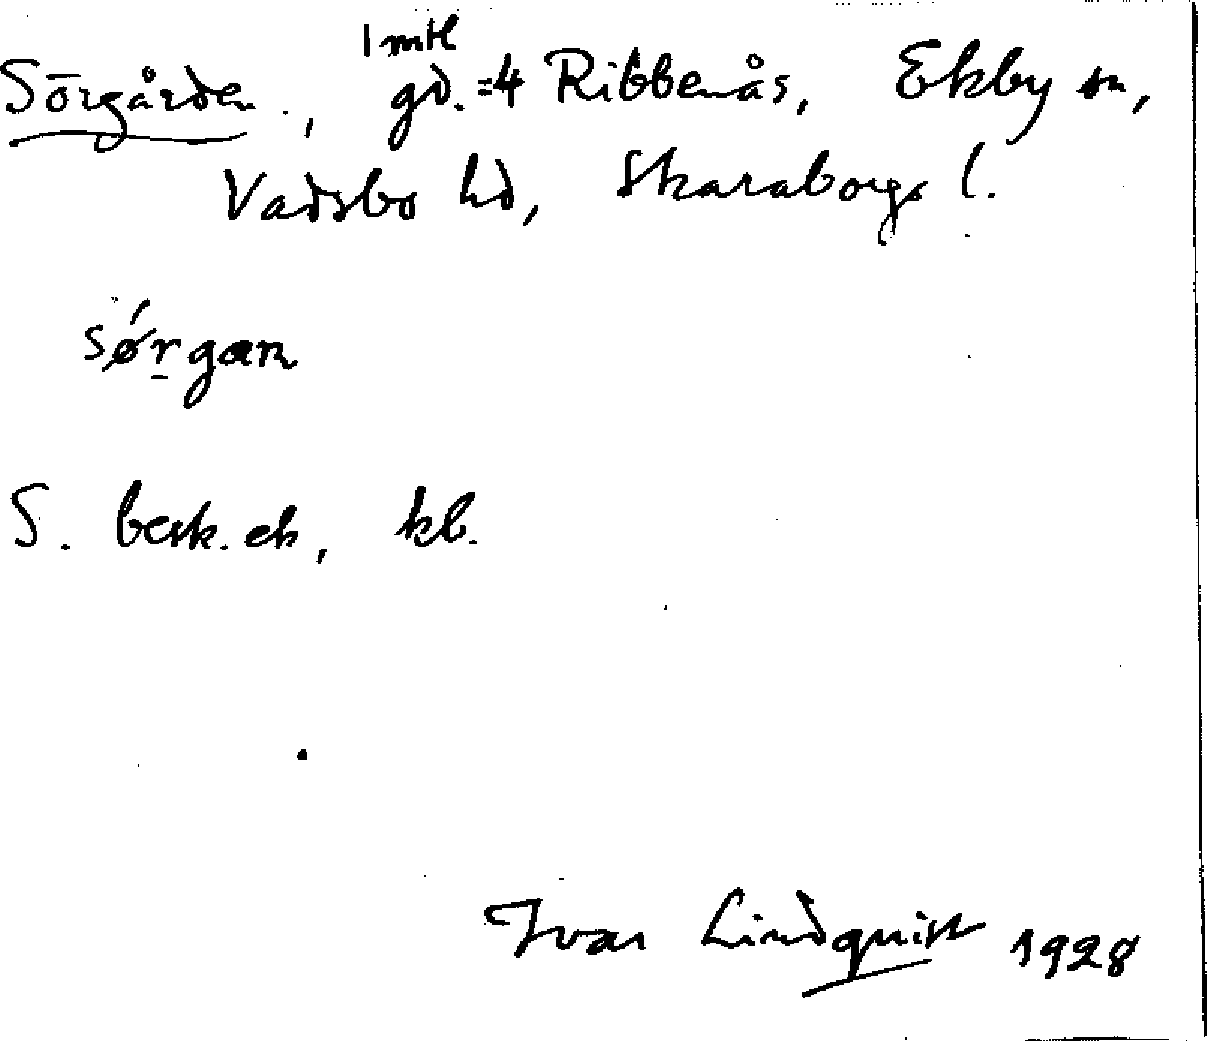 Sörgården, 1 mtl gd. =4 Ribbenås, Ekby sn,
Vadsbo hd, Skaraborgs l.
sǿrgan
S. besk. ek, kb.
Ivar Lindquist 1928